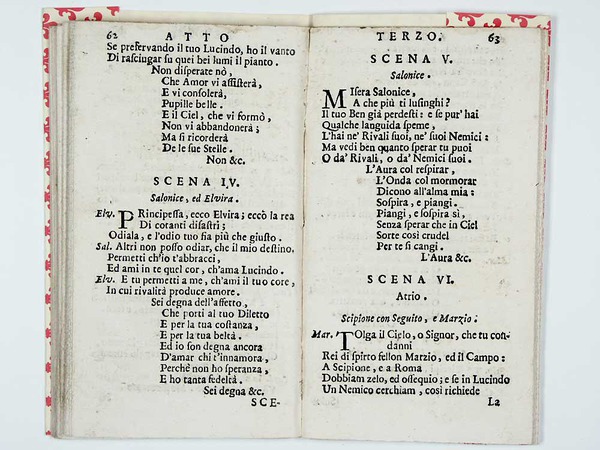 62 ATTO
Se preservando il tuo Lucindo, ho il vanto
Di rasciugar su quei bei lumi il pianto.
Non disperate nò,
Che Amor vi assisterà,
E vi consolerà,
Pupille belle.
E il Ciel, che vi formò,
Non vi abbandonerà;
Ma si ricorderà
De le sue Stelle.
Non &c.
SCENA IV.
Salonice, ed Elvira.
Elv. PRincipessa, ecco Elvira; eccò la rea
Di cotanti disastri;
Odiala, e l'odio tuo sia più che giusto.
Sal. Altri non posso odiar, che il mio destino.
Permetti ch'io t'abbracci,
Ed ami in te quel cor, ch'ama Lucindo.
Elv. E tu permetti a me, ch'ami il tuo core,
In cui rivalità produce amore.
Sei degna dell'affetto,
Che porti al tuo Diletto
E per la tua costanza,
E per la tua beltà.
Ed io son degna ancora
D'amar chi t'innamora,
Perchè non ho speranza,
E ho tanta fedeltà.
Sei degna &c.
SCE-
TERZO. 63
SCENA V.
Salonice.
MIsera Salonice,
A che più ti lusinghi?
Il tuo Ben già perdesti: e se pur' hai
Qualche languida speme,
L'hai ne' Rivali suoi, ne' suoi Nemici:
Ma vedi ben quanto sperar tu puoi
O da' Rivali, o da' Nemici suoi.
L'Aura col respirar,
L'Onda col mormorar
Dicono all'alma mia:
Sospira, e piangi.
Piangi, e sospira sì,
Senza sperar che in Ciel
Sorte così crudel
Per te si cangi.
L'Aura &c.
SCENA VI.
Atrio.
Scipione con Seguito, e Marzio.
Mar. TOlga il Cielo, o Signor, che tu con-
danni
Rei di spirto fellon Marzio, ed il Campo:
A Scipione, e a Roma
Dobbiam zelo, ed ossequio; e se in Lucindo
Un Nemico cerchiam, così richiede
La